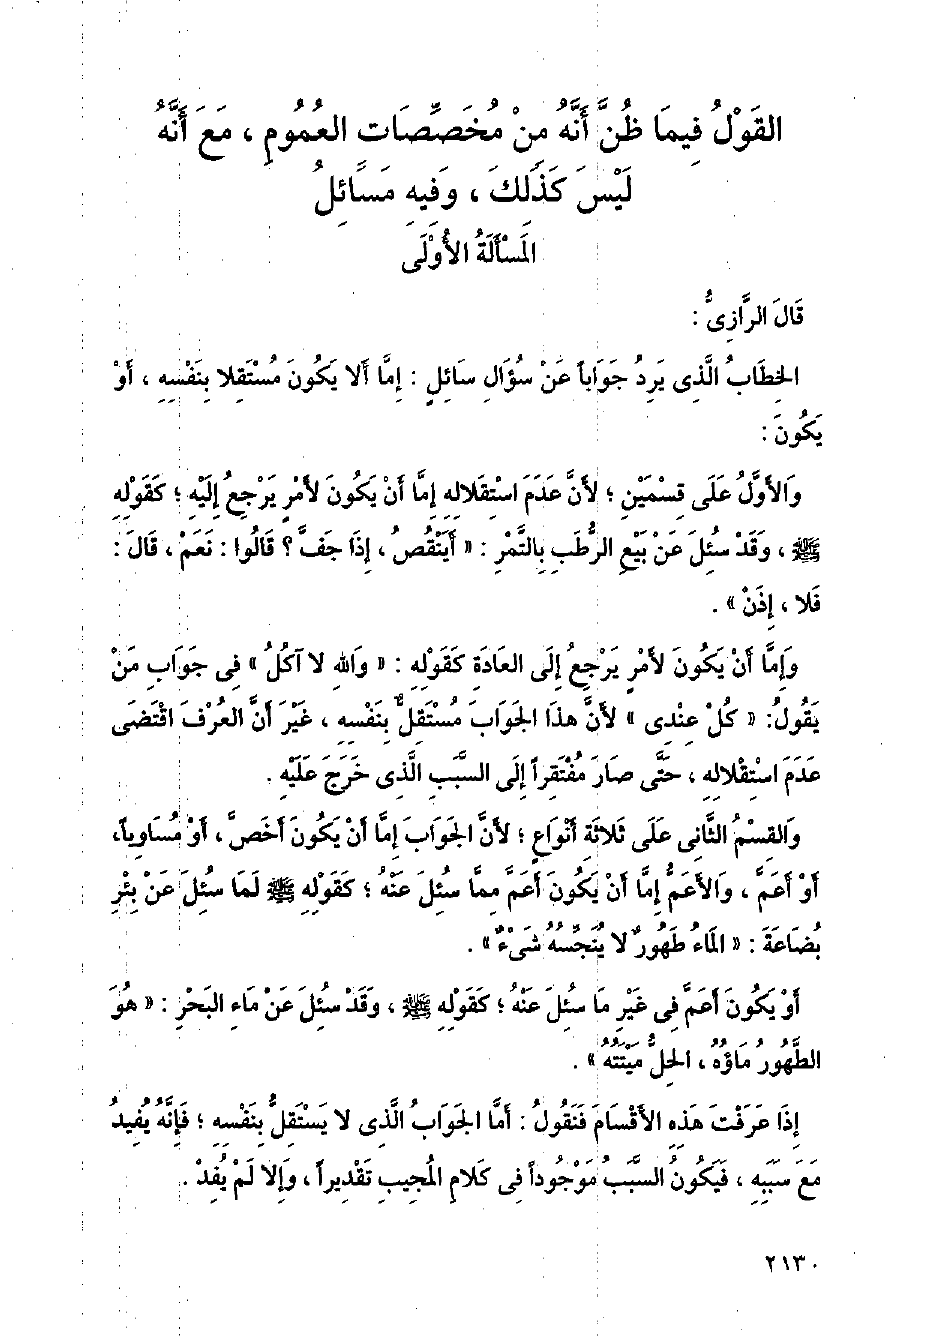 القَوْلُ فِيمَا ظُنَّ أَنَّهُ مِنْ مُخَصِّصَات العُمُومِ ، مَعَ أَنَّهُ
لَيْسَ كَذَلِكَ ، وَفِيهِ مَسَائِلُ
المَسْأَلَةُ الأُوْلَى
قَالَ الرَّازِىُّ :
الخِطَابُ الَّذِى يَرِدُ جَوَاباً عَنْ سُؤَالِ سَائِلٍ : إِمَّا أَلا يَكُونَ مُسْتَقِلا بِنَفْسِهِ ، أَوْ
يَكُونَ :
وَالأَوَّلُ عَلَى قِسْمَيْنِ ؛ لأَنَّ عَدَمَ اسْتِقْلالِهِ إِمَّا أَنْ يَكُونَ لأَمْرٍ يَرْجِعُ إِلَيْهِ ؛ كَقَوْلِهِ
ﷺ ، وَقَدْ سُئِلَ عَنْ بَيْعِ الرُّطَبِ بِالتَّمْرِ : « أَيَنْقُصُ ، إِذَا جَفَّ ؟ قَالُوا : نَعَمْ ، قَالَ :
فَلا ، إِذَنْ » .
وَإِمَّا أَنْ يَكُونَ لأَمْرٍ يَرْجِعُ إِلَى العَادَةِ كَقَوْلِهِ : « وَاللهِ لا آكُلُ » فِى جَوَابِ مَنْ
يَقُولُ: « كُلْ عِنْدِى » لأَنَّ هذَا الجَوَابَ مُسْتَقِلٌّ بِنَفْسِهِ ، غَيْرَ أَنَّ العُرْفَ اقْتَضَى
عَدَمَ اسْتِقْلالِهِ ، حَتَّى صَارَ مُفْتَقِراً إِلَى السَّبَبِ الَّذِى خَرَجَ عَلَيْهِ .
وَالقِسْمُ الثَّانِى عَلَى ثَلاثَةِ أَنْوَاعٍ ؛ لأَنَّ الجَوَابَ إِمَّا أَنْ يَكُونَ أَخَصَّ ، أَوْ مُسَاوِياً،
أَوْ أَعَمَّ ، وَالأَعَمُّ إِمَّا أَنْ يَكُونَ أَعَمَّ مِمَّا سُئِلَ عَنْهُ ؛ كَقَوْلِهِ ﷺ لَمَا سُئِلَ عَنْ بِئْرِ
بُضَاعَةَ : « المَاءُ طَهُورٌ لا يُنَجِّسُهُ شَىْءٌ» .
أَوْ يَكُونَ أَعَمَّ فِى غَيْرِ مَا سُئِلَ عَنْهُ ؛ كَقَوْلِهِ ﷺ ، وَقَدْ سُئِلَ عَنْ مَاءِ البَحْرِ : « هُوَ
الطَّهُورُ مَاؤُهُ ، الحِلُّ مَيْتَتُهُ » .
إِذَا عَرَفْتَ هَذِهِ الأَقْسَامَ فَنَقُولُ : أَمَّا الجَوَابُ الَّذِى لا يَسْتَقِلُّ بِنَفْسِهِ ؛ فَإِنَّهُ يُفِيدُ
مَعَ سَبَبِهِ ، فَيَكُونُ السَّبَبُ مَوْجُوداً فِى كَلامِ المُجِيبِ تَقْدِيراً ، وَإِلا لَمْ يُفِدْ .
٢١٣٠